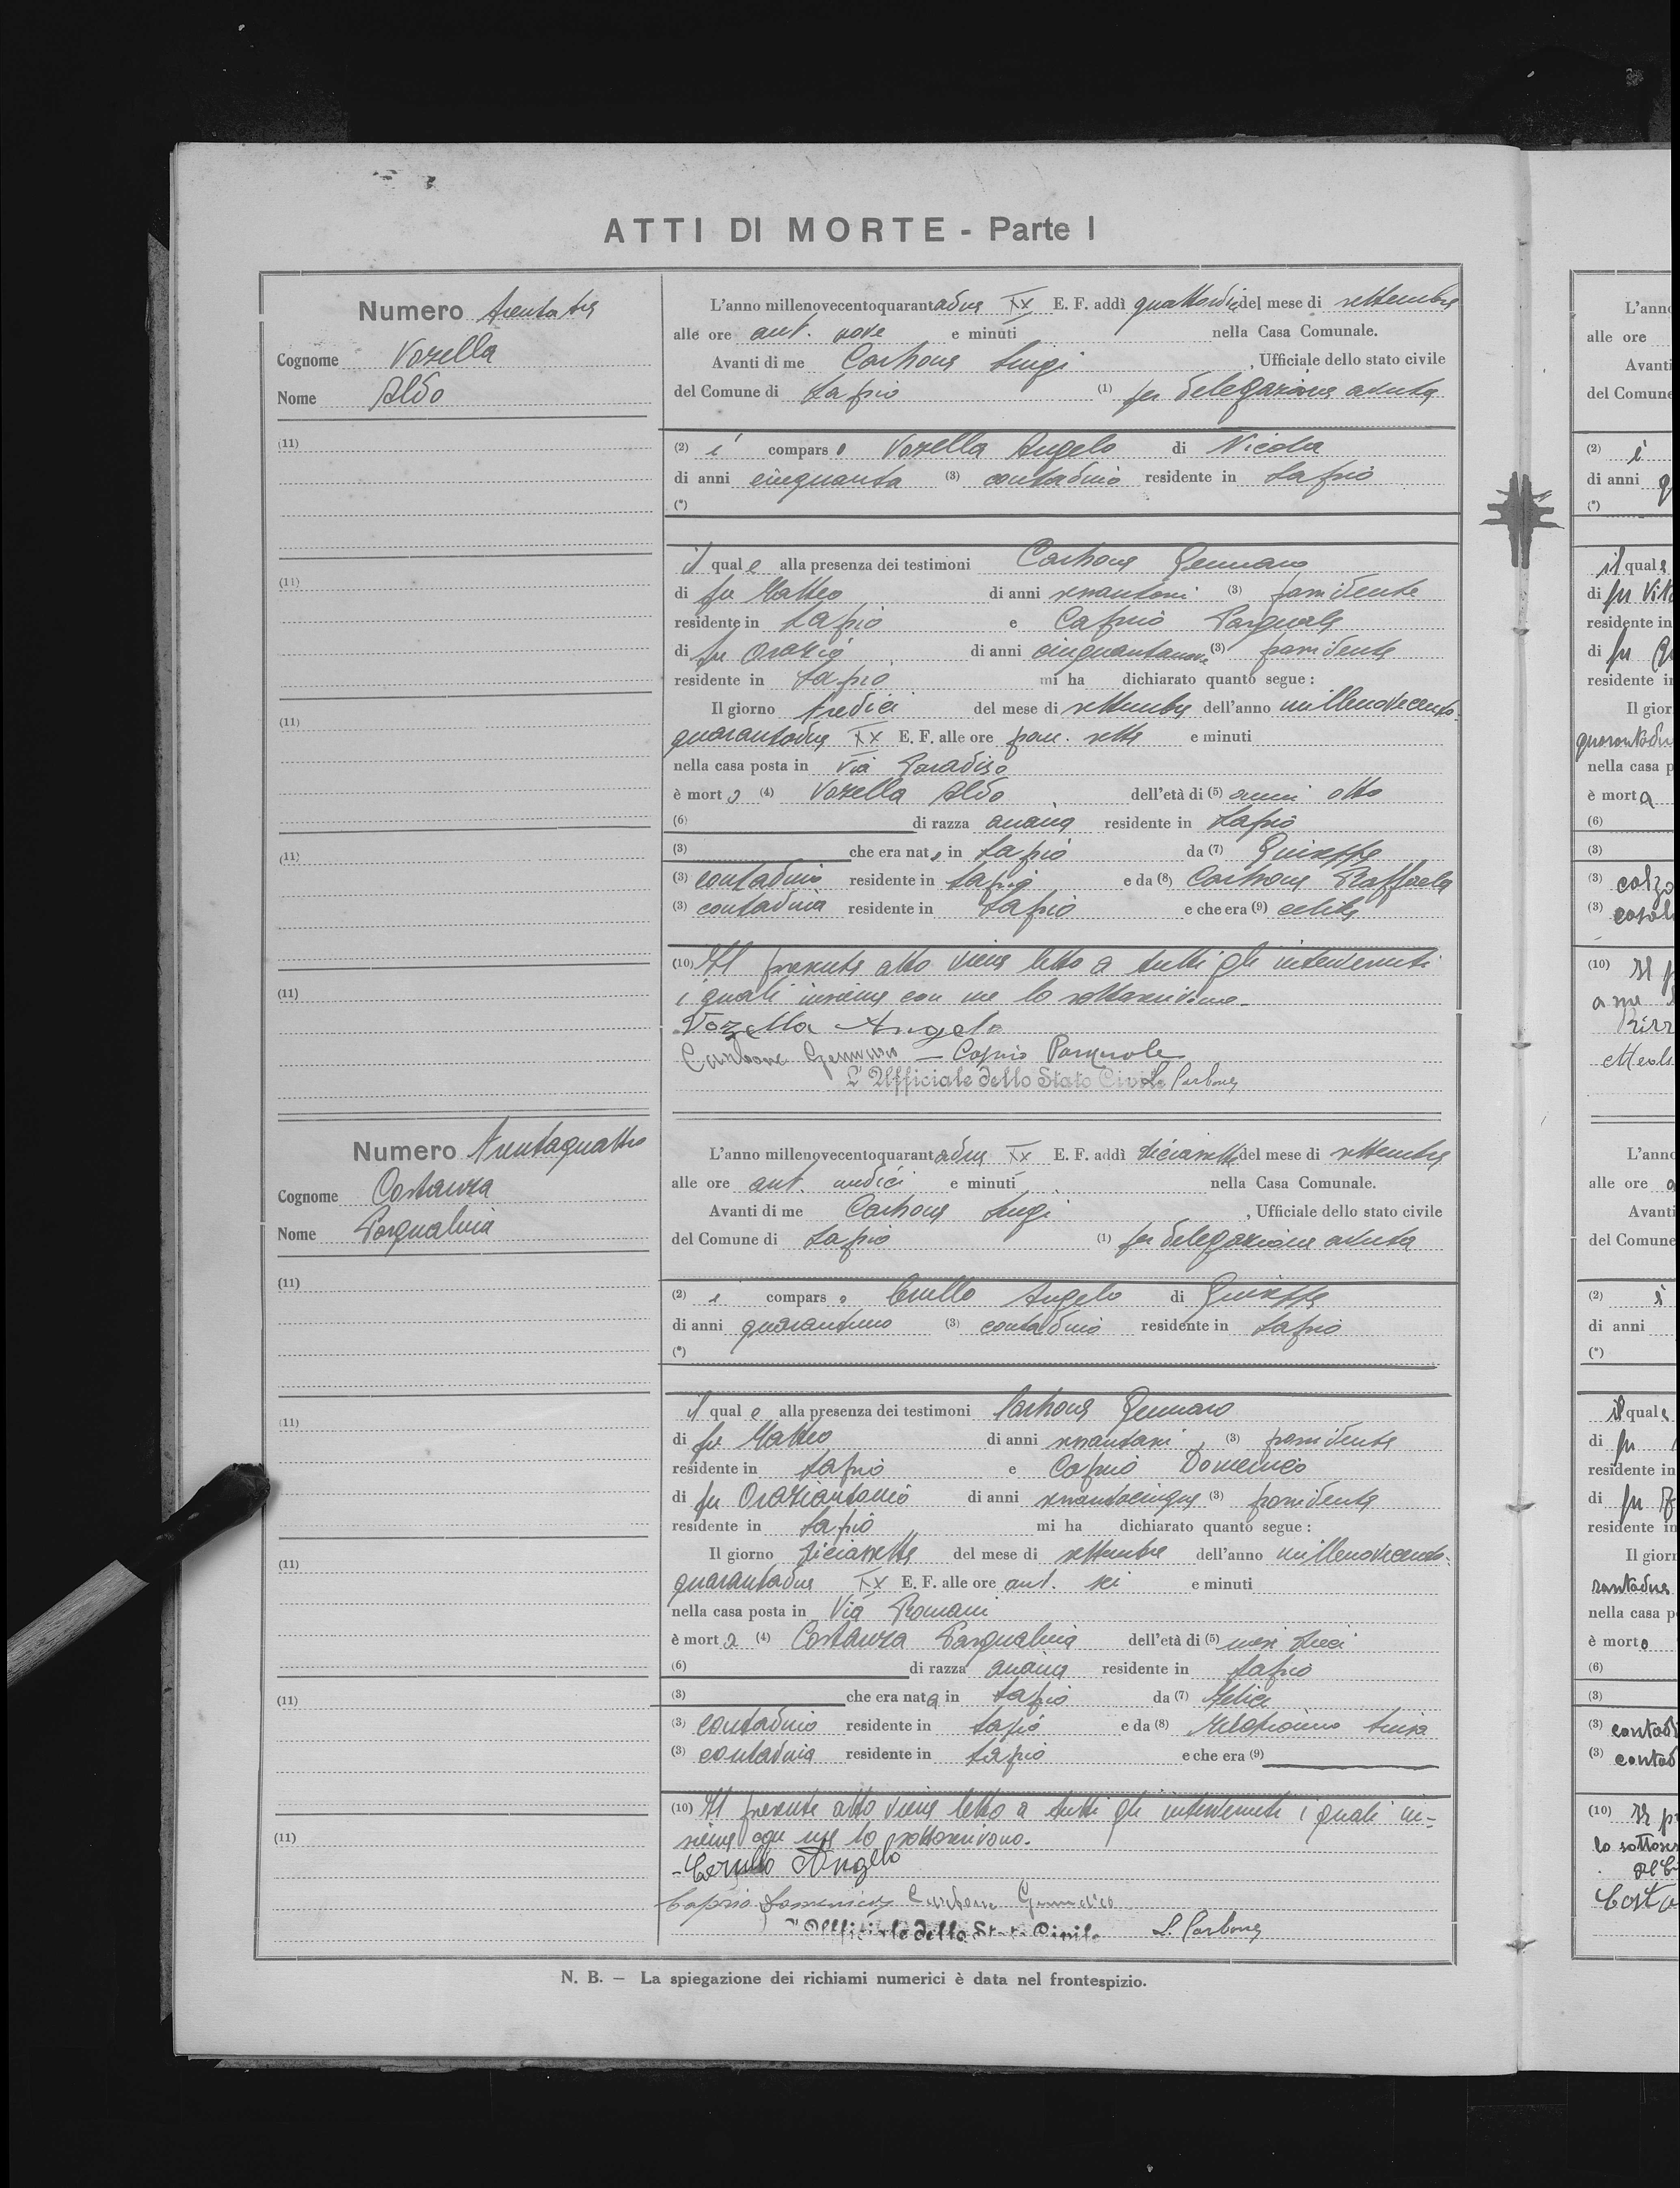 ATTI DI MORTE - Parte I
Numero trentatre
Cognome Vozella
Nome Aldo
(11)
(11)
(11)
(11)
(11)
L'anno millenovecentoquarantadue XX E. F. addì quattordici del mese di settembre
alle ore ant. nove e minuti nella Casa Comunale.
Avanti di me Carbone Luigi , Ufficiale dello stato civile
del Comune di Lapio (1) per delegazione avuta
(2) è compars o Vozella Angelo di Nicola
di anni cinquanta (3) contadino residente in Lapio
(*)
il qual e alla presenza dei testimoni Carbone Gennaro
di fu Matteo di anni (3) possidente
residente in Lapio e Caprio Pasquale
di fu Orazio di anni cinquantanove (3) possidente
residente in Lapio mi ha dichiarato quanto segue :
Il giorno tredici del mese di settembre dell'anno millenovecento-
quarantadue XX E. F. alle ore pom. sette e minuti
nella casa posta in Via Paradiso
è mort o (4) Vozella Aldo dell'età di (5) anni otto
(6) di razza ariana residente in Lapio
(3) che era nat o in Lapio da (7) Giuseppe
(3) contadino residente in Lapio e da (8) Carbone Raffaela
(3) contadina residente in Lapio e che era (9) celibe
(10) Il presente atto viene letto a tutti gli intervenuti
i quali insieme con me lo sottoscrivono.
Vozella Angelo
Carbone Gennaro - Caprio Pasquale
L'Ufficiale dello Stato Civile L. Carbone
Numero trentaquattro
Cognome Costanza
Nome Pasqualina
(11)
(11)
(11)
(11)
(11)
L'anno millenovecentoquarantadue XX E. F. addì diciassette del mese di settembre
alle ore ant. undici e minuti nella Casa Comunale.
Avanti di me Carbone Luigi , Ufficiale dello stato civile
del Comune di Lapio (1) per delegazione avuta
(2) è compars o Cerullo Angelo di Giuseppe
di anni quarantuno (3) contadino residente in Lapio
(*)
il qual e alla presenza dei testimoni Carbone Gennaro
di fu Matteo di anni (3) possidente
residente in Lapio e Caprio Domenico
di fu Oraziantonio di anni sessantacinque (3) possidente
residente in Lapio mi ha dichiarato quanto segue :
Il giorno diciassette del mese di settembre dell'anno millenovecento-
quarantadue XX E. F. alle ore ant. sei e minuti
nella casa posta in Via Romani
è mort a (4) Costanza Pasqualina dell'età di (5) mesi dieci
(6) di razza ariana residente in Lapio
(3) che era nat a in Lapio da (7) Felice
(3) contadino residente in Lapio e da (8) Luisa
(3) contadina residente in Lapio e che era (9)
(10) Il presente atto viene letto a tutti gli intervenuti i quali in-
sieme con me lo sottoscrivono.
- Cerullo Angelo
Caprio Domenico Carbone
L'Ufficiale dello Stato Civile L. Carbone
N. B. — La spiegazione dei richiami numerici è data nel frontespizio.
L'anno
alle ore
Avanti
del Comune
(2) è
di anni
(*)
il quale
di fu Vito
residente in
di fu
residente in
Il gior
quarantadue
nella casa p
è morta
(6)
(3)
(3) calzo
(3) casal
(10) Il p
a me
L'anno
alle ore
Avanti
del Comune
(2) è
di anni
(*)
il quale
di fu
residente in
di fu
residente in
Il giorn
rantadue
nella casa p
è morto
(6)
(3)
(3) contad
(3) contad
(10) Il p
lo sottos